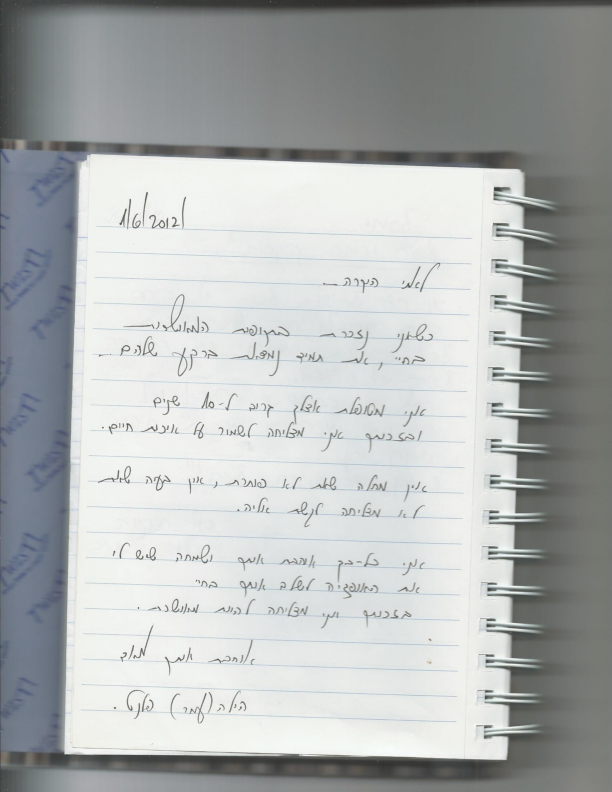 1/6/2012
לאמי היקרה -
כשאני נזכרת בתקופות המאושרות
בחיי, את תמיד נמצאת ברקע שלהם -
אני מטופלת אצלך קרוב ל-10 שנים
ובזכותך אני מצליחה לשמור על איכות חיים.
אין מחלה שאת לא פותרת, אין בעיה שאת
לא מצליחה לגשת אליה.
אני כל-כך אוהבת אותך ושמחה שיש לי
את האופציה לשלב אותך בחיי
בזכותך אני מצליחה להיות מאושרת.
אוהבת אותך מאוד
הילה (עמר)
TWIST